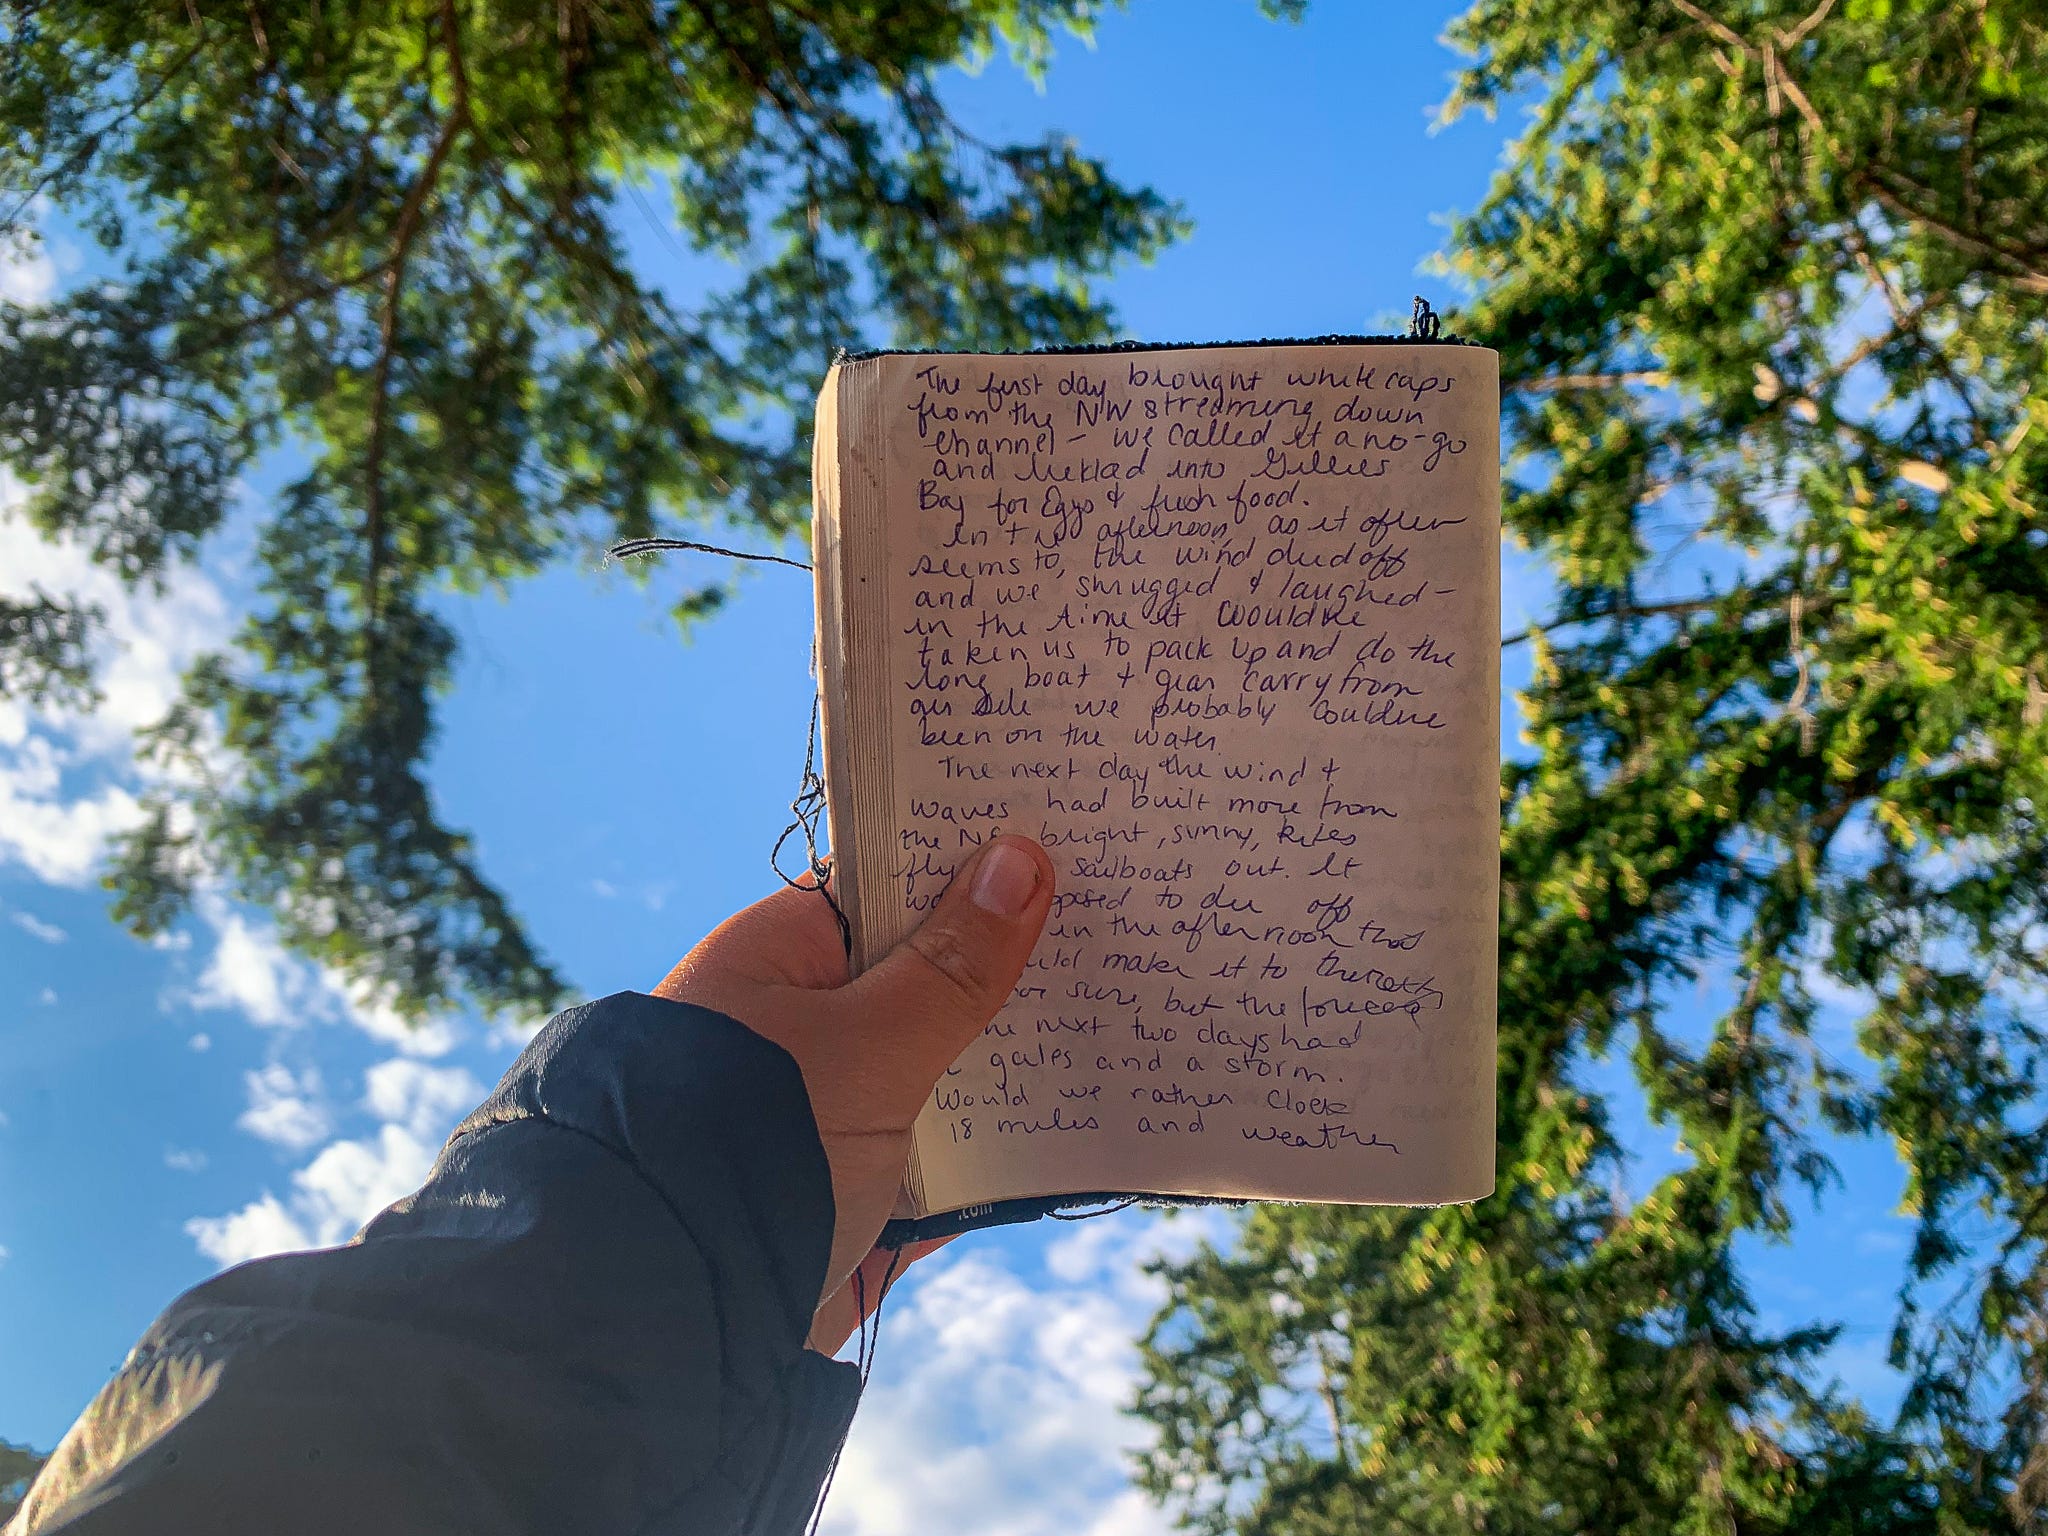 The first day brought white caps
from the NW streaming down
channel - we called it a no-go
and trekked into Gillies
Bay for Eggs & fresh food.
in the afternoon, as it often
seems to, the wind died off
and we shrugged & laughed -
in the time it would've
taken us to pack up and do the
long boat & gear carry from
our site we probably could've
been on the water
The next day the wind &
waves had built more from
the bright, sunny, kites
sailboats out. It
to die off
in the afternoon that
make it to
sure, but the
next two days had
gales and a storm.
Would we rather clock
18 miles and weather
.com